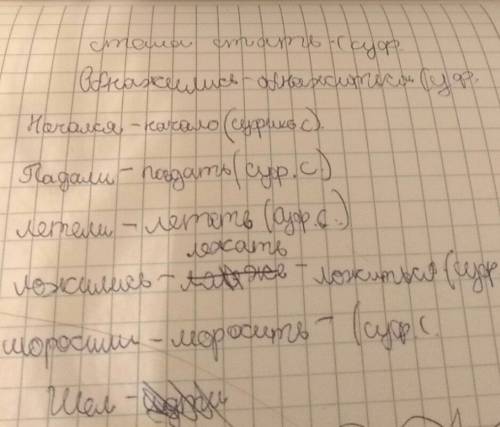 стала стать - (суф.
Обнажились - обнажиться (суф.
Начался - начало (суфикс с).
Падали - падать (суф. с)
летели - летать (суф. с.)
лежать
ложились - - ложиться (суф
моросили - моросить - (суф. с.
Шел -